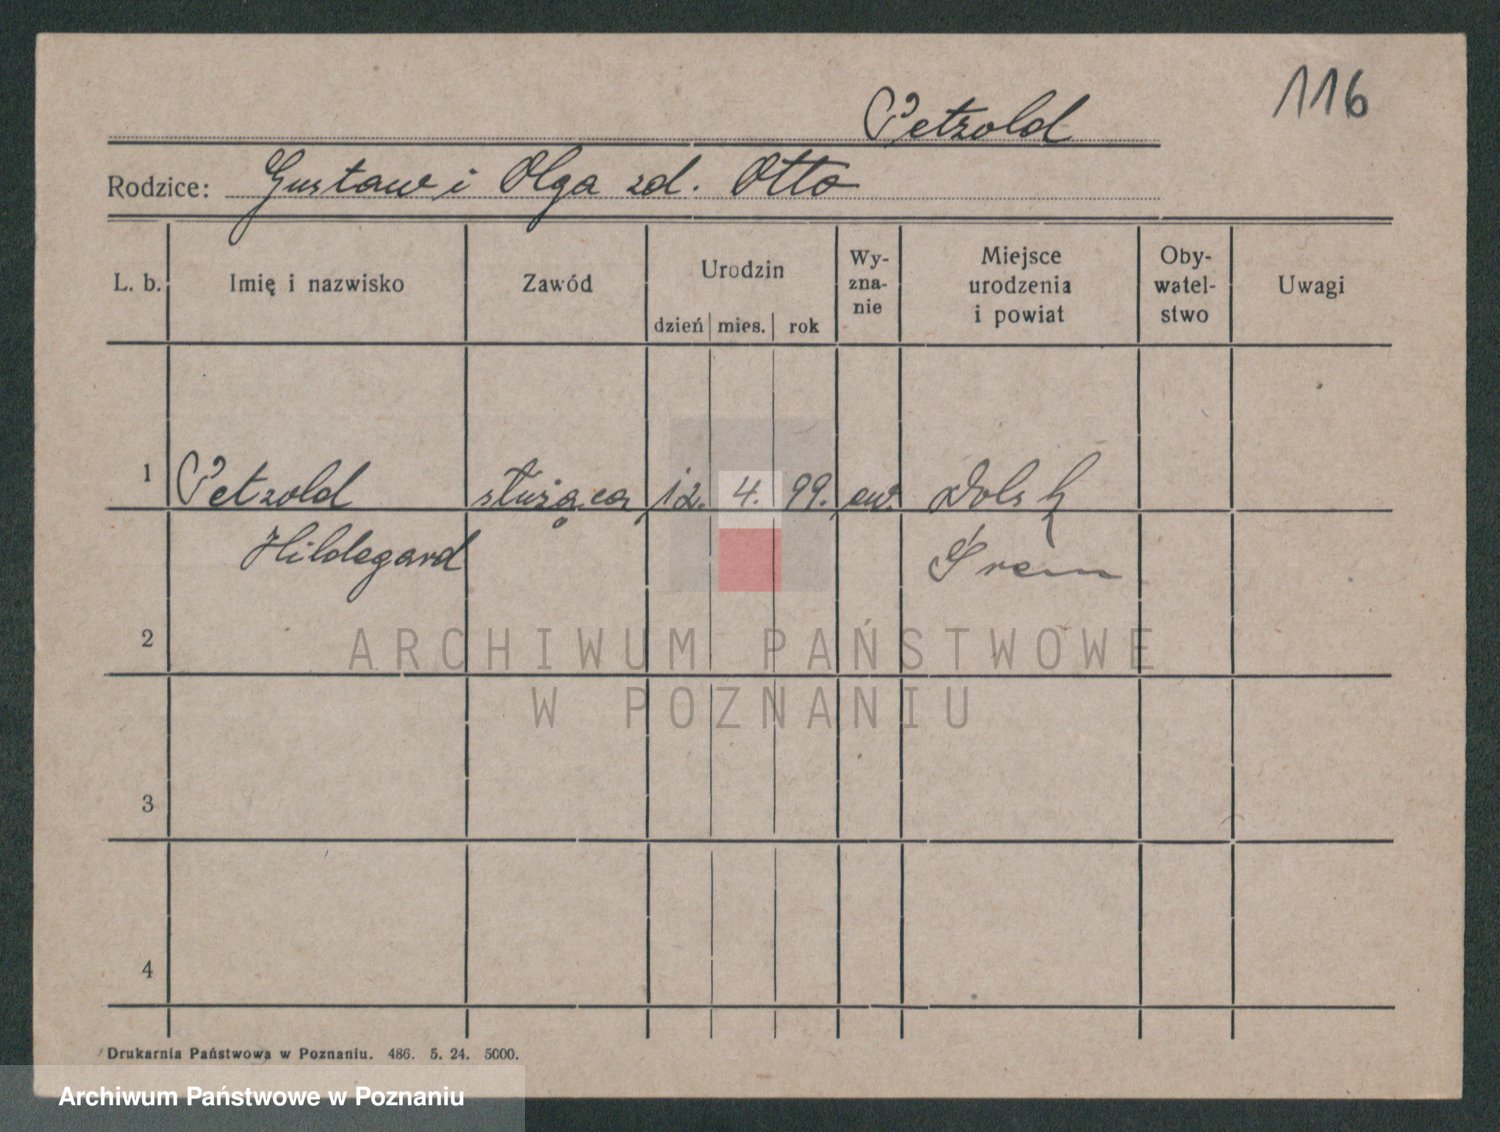 116
Petzold
Rodzice: Gustaw i Olga zd. Otto
L. b. Imię i nazwisko Zawód Urodzin dzień mies. rok Wy-zna-nie Miejsce urodzenia i powiat Oby-watel-stwo Uwagi
1 Petzold służąca 12. 4. 99. ew. Dolsk
Hildegard Śrem
2
ARCHIWUM PAŃSTWOWE
W POZNANIU
3
4
Drukarnia Państwowa w Poznaniu. 486. 5. 24. 5000.
Archiwum Państwowe w Poznaniu